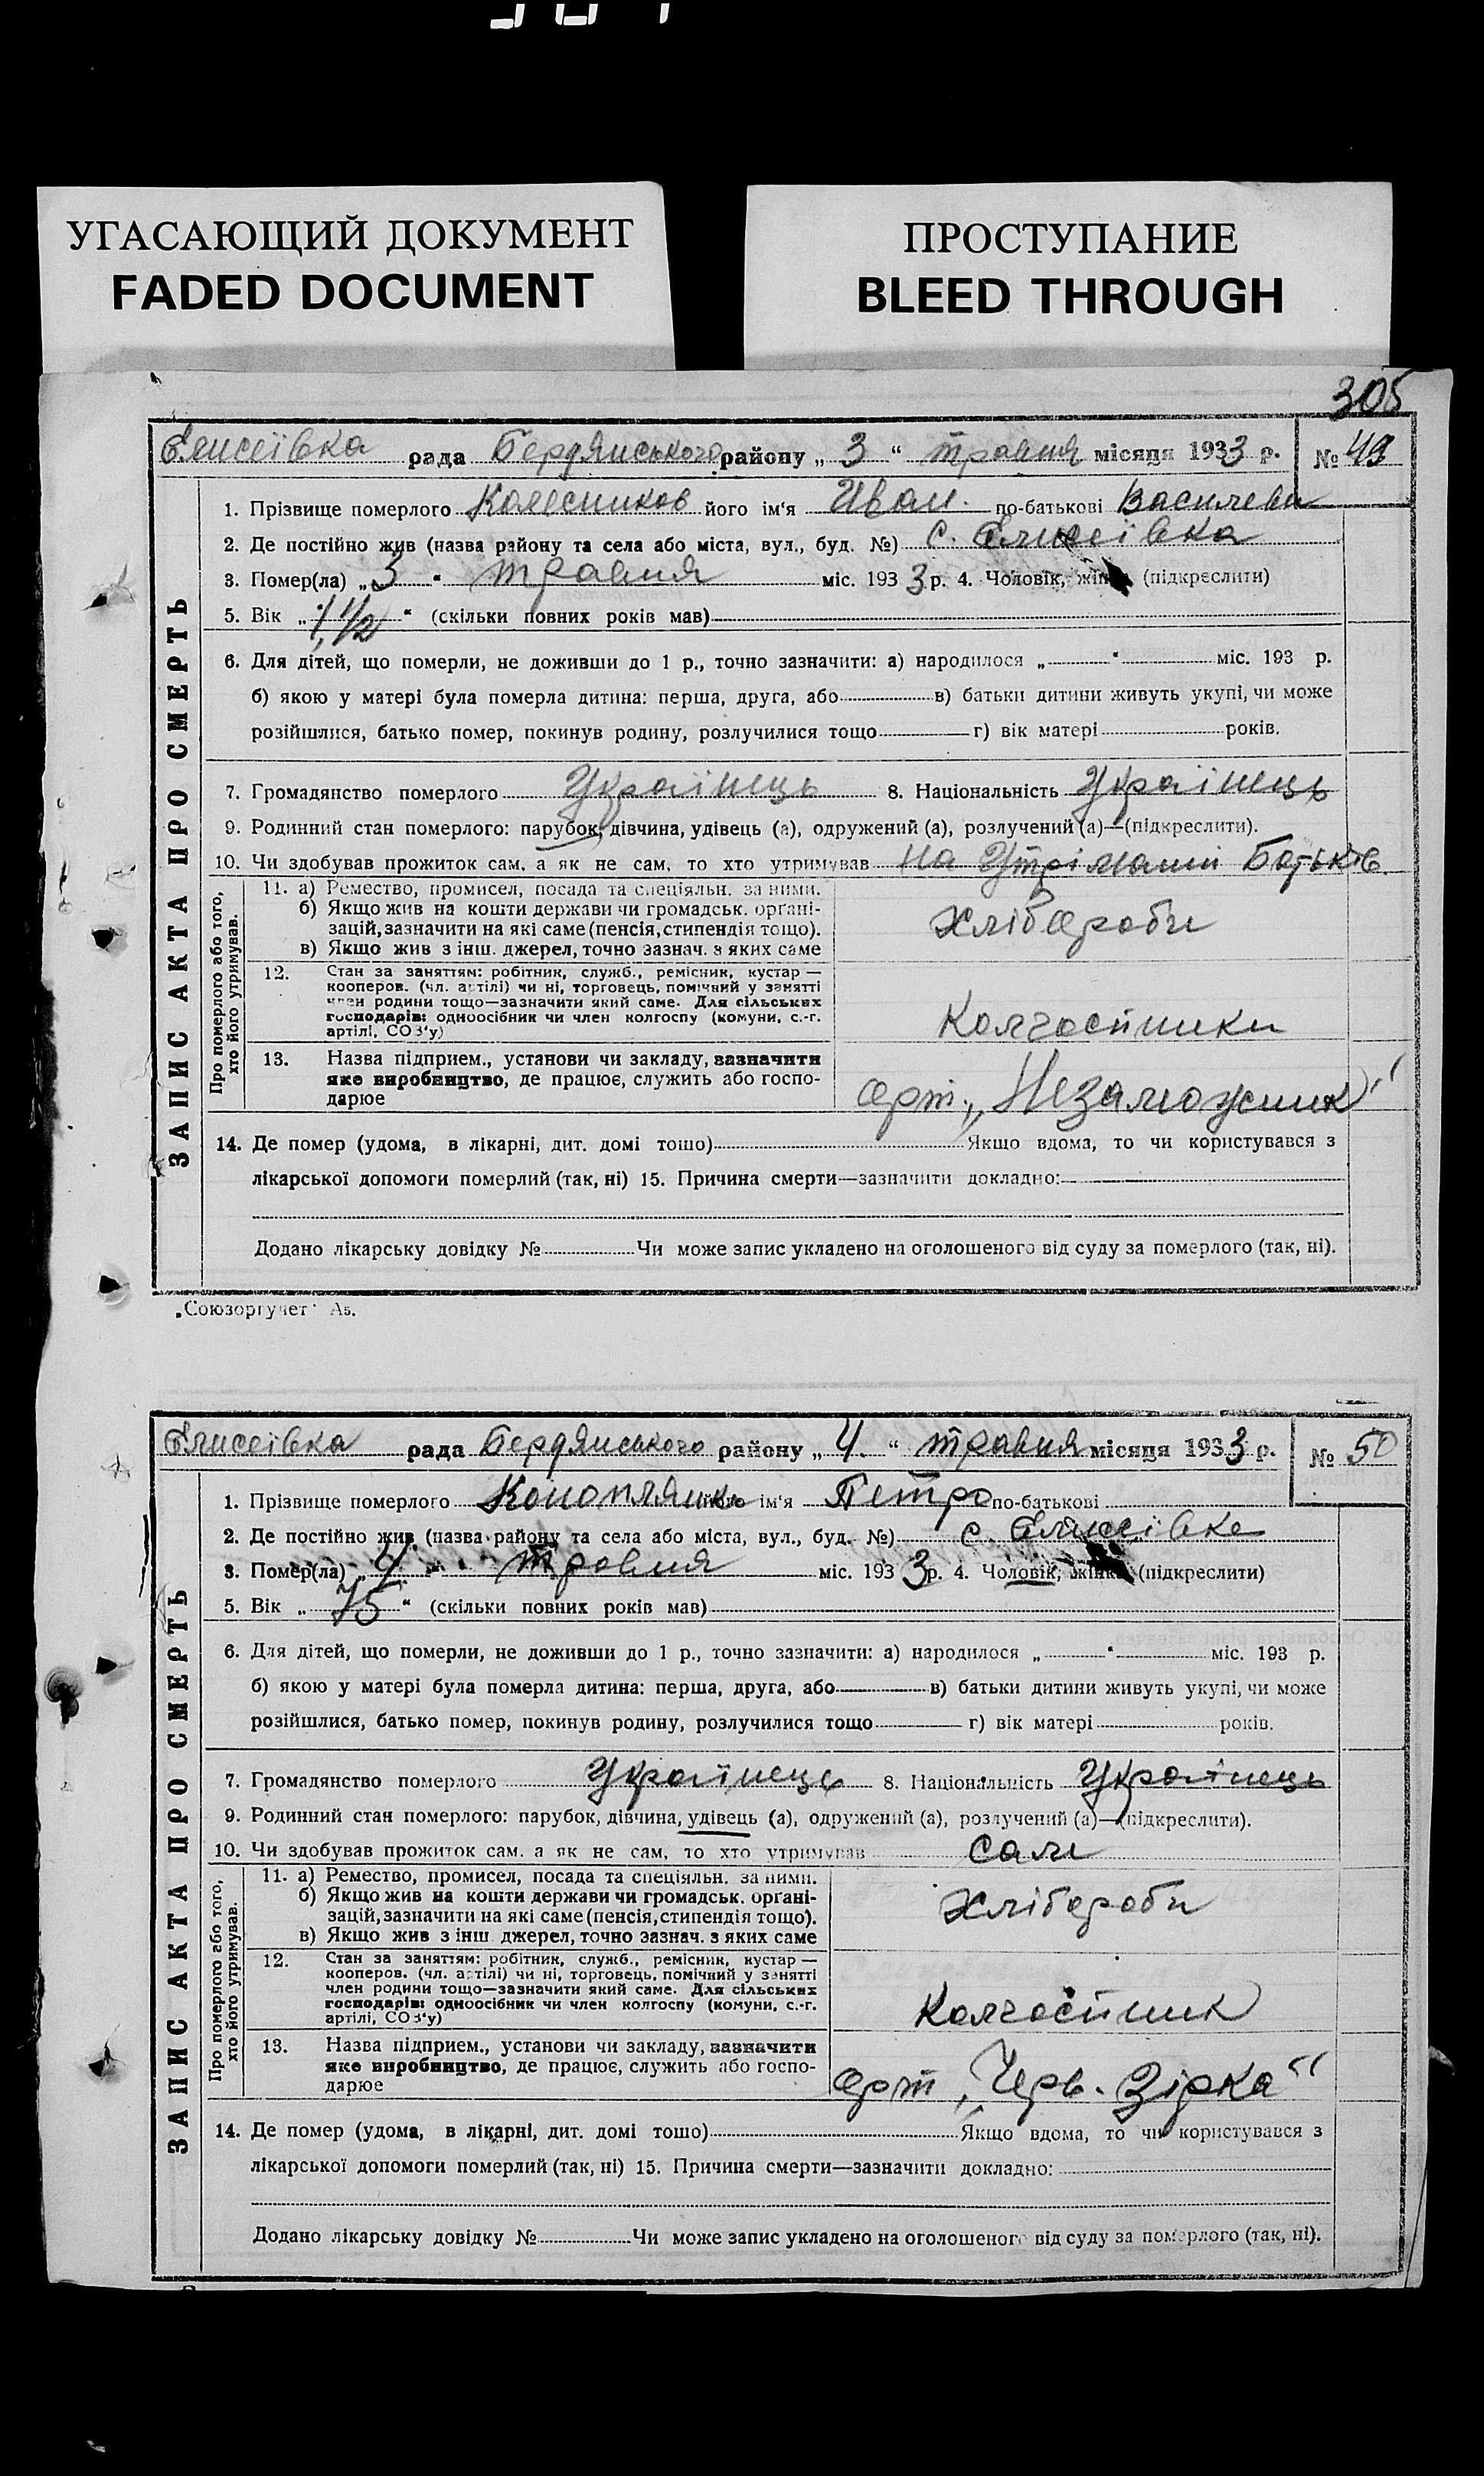 УГАСАЮЩИЙ ДОКУМЕНТ
FADED DOCUMENT
ПРОСТУПАНИЕ
BLEED THROUGH
305
Єлисеївка рада Бердянського району „ 3 “ травня місяця 1933 р. № 49
ЗАПИС АКТА ПРО СМЕРТЬ
1. Прізвище померлого Колесников його ім‘я Иван. по-батькові Василеви
2. Де постійно жив (назва району та села або міста, вул., буд. №) с. Єлисеївка
3. Помер(ла) „ 3 “ травня міс. 193 3 р. 4. Чоловік, жінка (підкреслити)
5. Вік „ 1 1/2 “ (скільки повних років мав)
6. Для дітей, що померли, не доживши до 1 р., точно зазначити: а) народилося „ “ міс. 193 р.
б) якою у матері була померла дитина: перша, друга, або в) батьки дитини живуть укупі, чи може
розійшлися, батько помер, покинув родину, розлучилися тощо г) вік матері років.
7. Громадянство померлого Українець 8. Національність Українець
9. Родинний стан померлого: парубок, дівчина, удівець (а), одружений (а), розлучений (а)—(підкреслити).
10. Чи здобував прожиток сам, а як не сам, то хто утримував на Утріманні Батьків
Про померлого або того, хто його утримував.
11. а) Ремество, промисел, посада та спеціяльн. за ними.
б) Якщо жив на кошти держави чи громадськ. органі-
зацій, зазначити на які саме (пенсія, стипендія тощо).
в) Якщо жив з інш. джерел, точно зазнач. з яких саме
Хлібороби
12. Стан за заняттям: робітник, служб., ремісник, кустар —
кооперов. (чл. артілі) чи ні, торговець, помічний у занятті
член родини тощо—зазначити який саме. Для сільських
господарів: одноосібник чи член колгоспу (комуни, с.-г.
артілі, СОЗ‘у)
Колгоспники
13. Назва підприєм., установи чи закладу, зазначити
яке виробництво, де працює, служить або госпо-
дарює
арт. „Незаможник“
14. Де помер (удома, в лікарні, дит. домі тощо) Якщо вдома, то чи користувався з
лікарської допомоги померлий (так, ні) 15. Причина смерти—зазначити докладно:
Додано лікарську довідку № Чи може запис укладено на оголошеного від суду за померлого (так, ні).
„Союзоргучет“ Аз.
Єлисеївка рада Бердянського району „ 4. “ травня місяця 1933 р. № 50
ЗАПИС АКТА ПРО СМЕРТЬ
1. Прізвище померлого Конопляник його ім‘я Петро по-батькові
2. Де постійно жив (назва району та села або міста, вул., буд. №) с. Єлисеївка
3. Помер(ла) „ 4 “ травня міс. 193 3 р. 4. Чоловік, жінка (підкреслити)
5. Вік „ 75 “ (скільки повних років мав)
6. Для дітей, що померли, не доживши до 1 р., точно зазначити: а) народилося „ “ міс. 193 р.
б) якою у матері була померла дитина: перша, друга, або в) батьки дитини живуть укупі, чи може
розійшлися, батько помер, покинув родину, розлучилися тощо г) вік матері років.
7. Громадянство померлого Українець 8. Національність Українець
9. Родинний стан померлого: парубок, дівчина, удівець (а), одружений (а), розлучений (а)—(підкреслити).
10. Чи здобував прожиток сам, а як не сам, то хто утримував сам
Про померлого або того, хто його утримував.
11. а) Ремество, промисел, посада та спеціяльн. за ними.
б) Якщо жив на кошти держави чи громадськ. органі-
зацій, зазначити на які саме (пенсія, стипендія тощо).
в) Якщо жив з інш. джерел, точно зазнач. з яких саме
Хлібороби
12. Стан за заняттям: робітник, служб., ремісник, кустар —
кооперов. (чл. артілі) чи ні, торговець, помічний у занятті
член родини тощо—зазначити який саме. Для сільських
господарів: одноосібник чи член колгоспу (комуни, с.-г.
артілі, СОЗ‘у)
Колгоспник
13. Назва підприєм., установи чи закладу, зазначити
яке виробництво, де працює, служить або госпо-
дарює
арт „Черв. Зірка“
14. Де помер (удома, в лікарні, дит. домі тощо) Якщо вдома, то чи користувався з
лікарської допомоги померлий (так, ні) 15. Причина смерти—зазначити докладно:
Додано лікарську довідку № Чи може запис укладено на оголошеного від суду за померлого (так, ні).